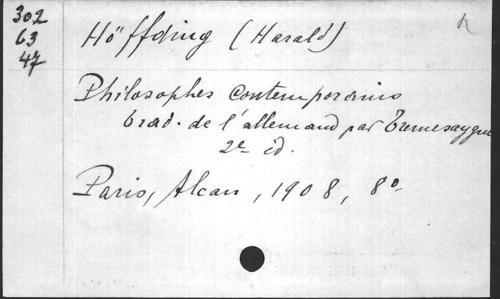 302
63
47
Höffding (Harald)
Philosophes contemporains
trad. de l'allemand par Tremesaygues
2e éd.
Paris, Alcan, 1908, 8º